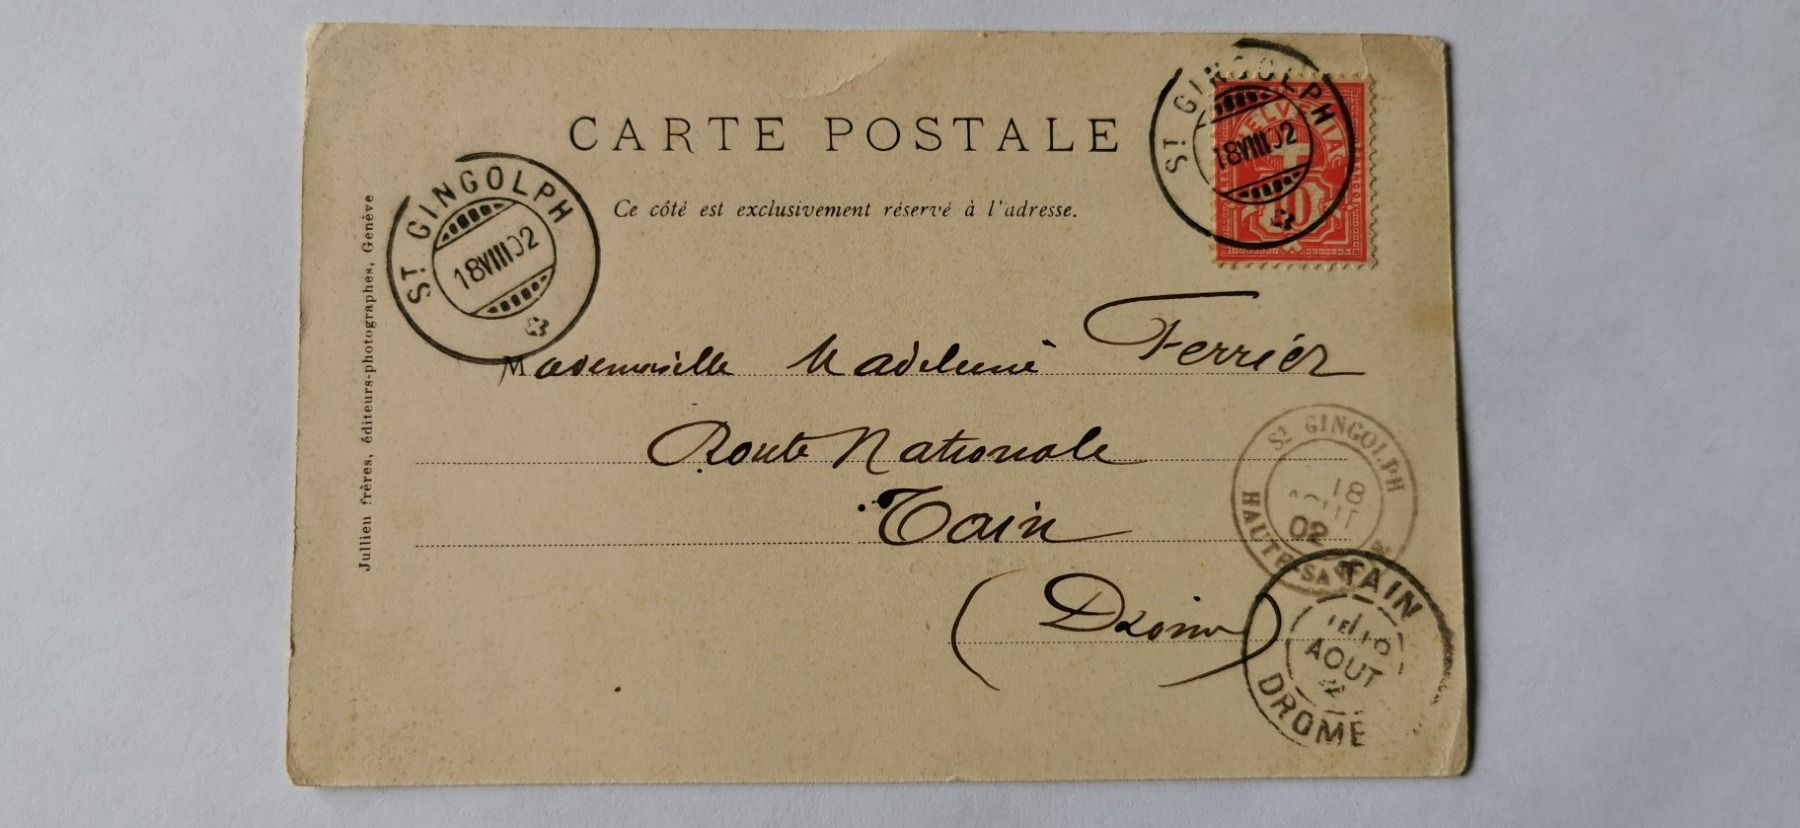 CARTE POSTALE
Ce côté est exclusivement réservé à l'adresse.
Jullien frères, éditeurs-photographes, Genève
ST GINGOLPH
18VIII02
ST GINGOLPH
18VIII02
HELVETIA
10
Mademoiselle Madeleine Ferrier
Route Nationale
Tain
(Drôme)
ST GINGOLPH
18
AOUT
02
HAUTE-SA
TAIN
AOUT
DROME